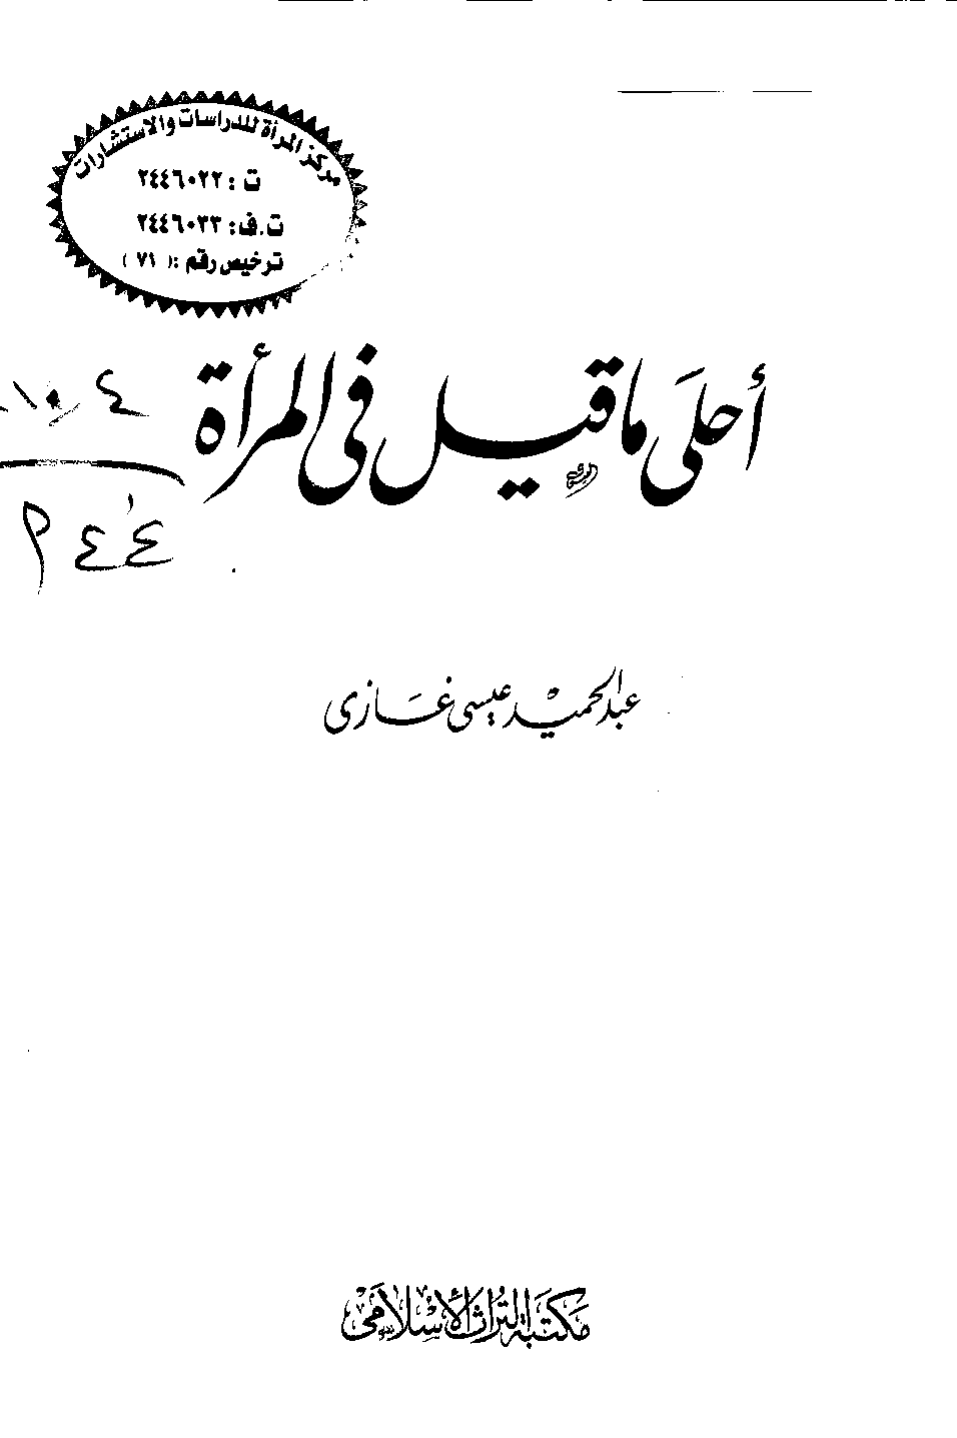 مركز المرأة للدراسات والاستشارات
ت : ٢٤٤٦٠٢٢
ت.ف: ٢٤٤٦٠٣٣
ترخيص رقم :( ٧١ )
أحلى ما قيل في المرأة
عبد الحميد عيسى غازى
مكتبة التراث الإسلامى